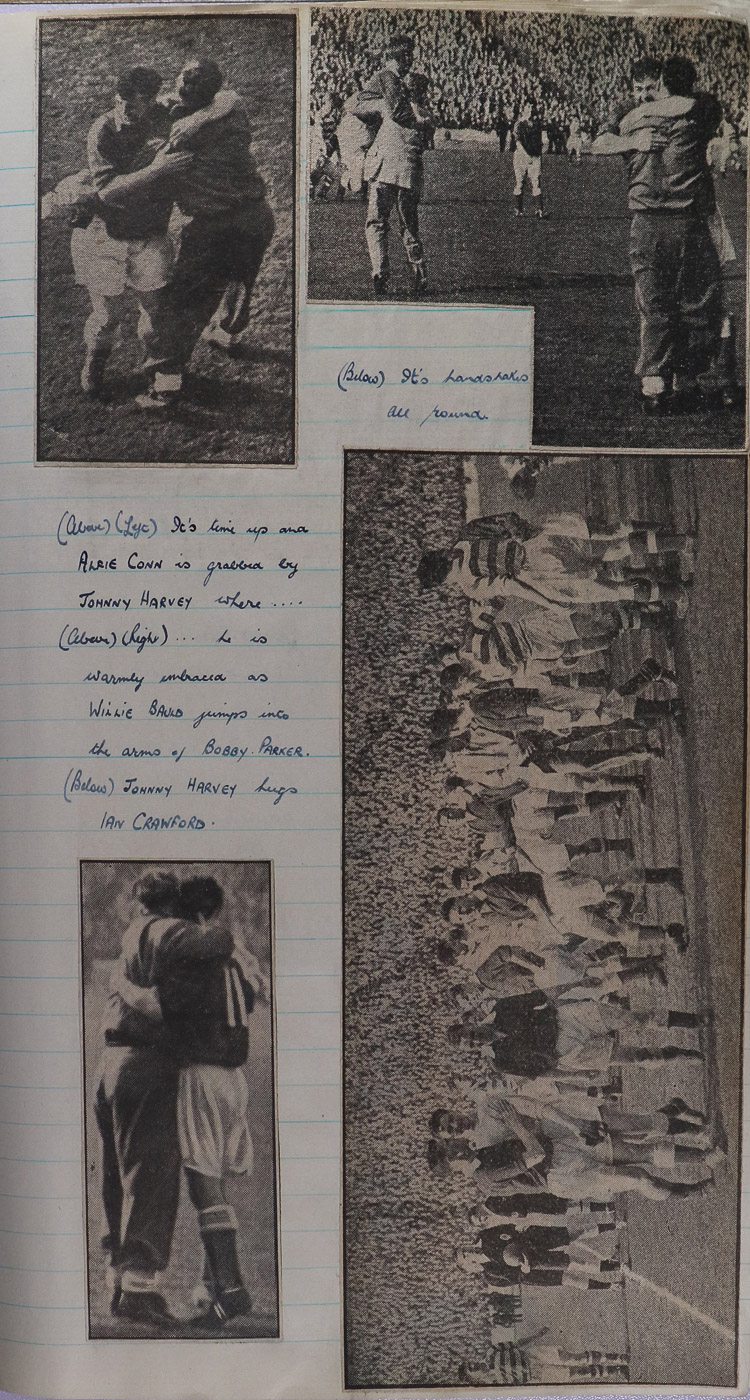 (Below) It's handshakes
all round.
(Above) (Left) It's time up and
ALFIE CONN is grabbed by
JOHNNY HARVEY where ....
(Above) (Right) ... he is
warmly embraced as
WILLIE BAULD jumps into
the arms of BOBBY PARKER.
(Below) JOHNNY HARVEY hugs
IAN CRAWFORD.